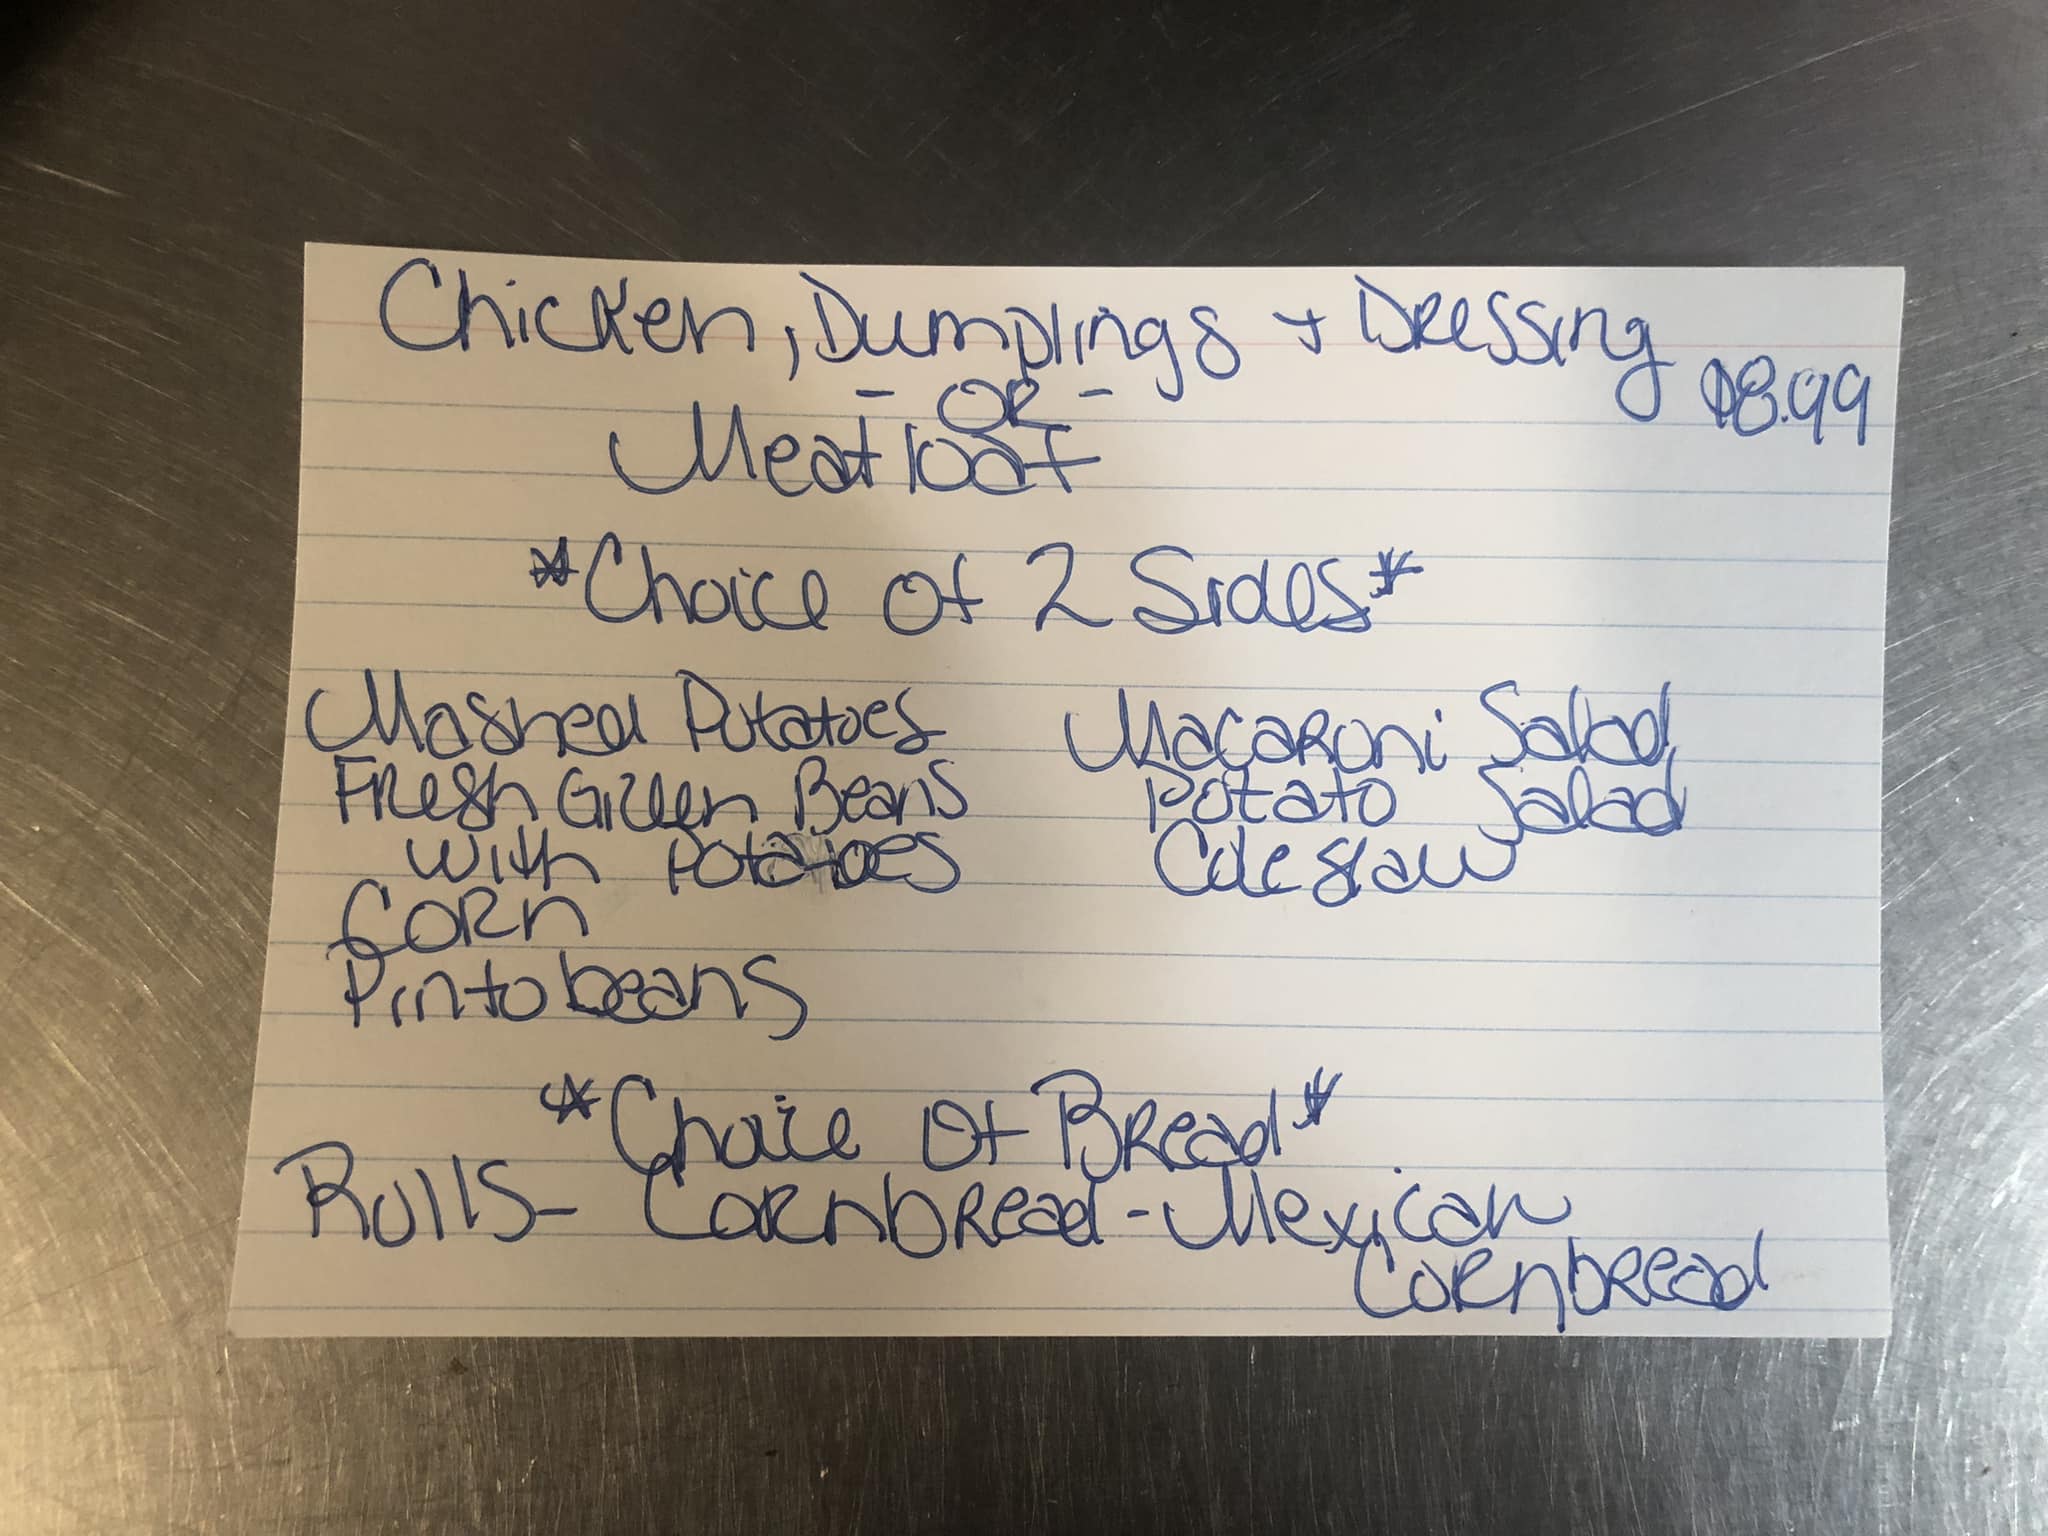 Chicken, Dumplings + Dressing
$8.99
- OR -
Meatloaf
*Choice Of 2 Sides*
Mashed Potatoes
Fresh Green Beans
with Potatoes
Corn
Pinto beans
Macaroni Salad
Potato Salad
Coleslaw
*Choice Of Bread*
Rolls - Cornbread - Mexican
Cornbread